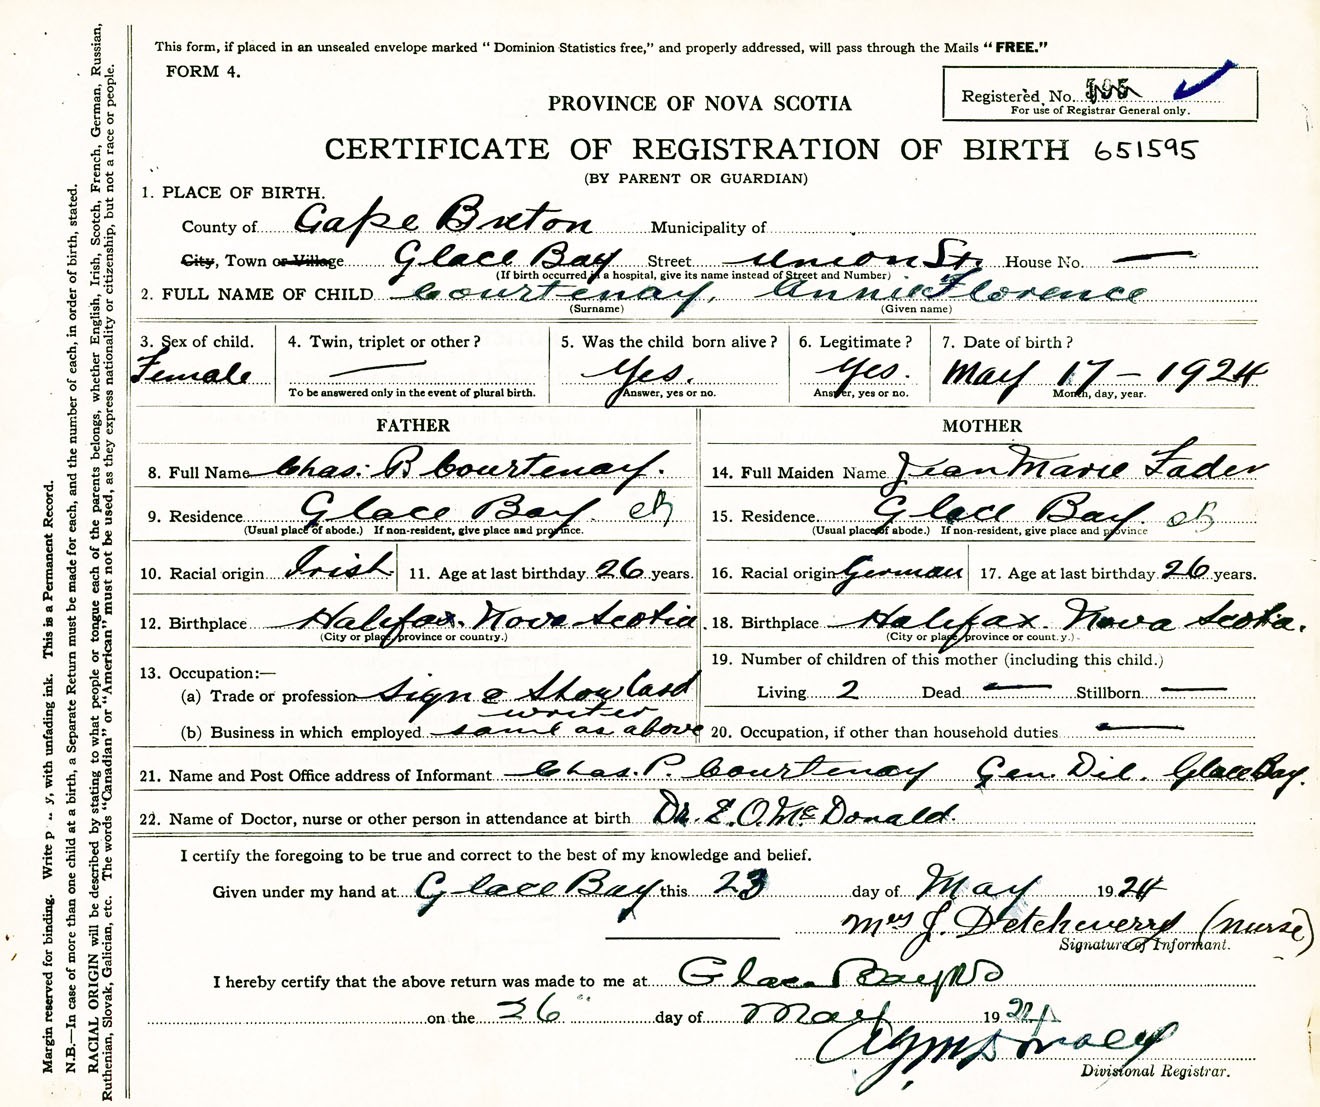 This form, if placed in an unsealed envelope marked " Dominion Statistics free," and properly addressed, will pass through the Mails " FREE."
FORM 4.
Registered No. 595
For use of Registrar General only.
PROVINCE OF NOVA SCOTIA
CERTIFICATE OF REGISTRATION OF BIRTH 651595
(BY PARENT OR GUARDIAN)
1. PLACE OF BIRTH.
County of Cape Breton Municipality of
City, Town or Village Glace Bay Street Union St. House No. —
(If birth occurred in a hospital, give its name instead of Street and Number)
2. FULL NAME OF CHILD Courtenay, Annie Florence
(Surname) (Given name)
3. Sex of child. 4. Twin, triplet or other? 5. Was the child born alive? 6. Legitimate? 7. Date of birth?
Female — Yes. Yes. May 17 - 1924
To be answered only in the event of plural birth. Answer, yes or no. Answer, yes or no. Month, day, year.
FATHER MOTHER
8. Full Name Chas. P. Courtenay. 14. Full Maiden Name Jean Marie Fader
9. Residence Glace Bay. 15. Residence Glace Bay.
(Usual place of abode.) If non-resident, give place and province. (Usual place of abode.) If non-resident, give place and province
10. Racial origin Irish 11. Age at last birthday 26 years. 16. Racial origin German 17. Age at last birthday 26 years.
12. Birthplace Halifax. Nova Scotia 18. Birthplace Halifax. Nova Scotia.
(City or place, province or country.) (City or place, province or country.)
13. Occupation:— 19. Number of children of this mother (including this child.)
(a) Trade or profession Sign & Show Card writer Living 2 Dead — Stillborn —
(b) Business in which employed same as above 20. Occupation, if other than household duties —
21. Name and Post Office address of Informant Chas. P. Courtenay Gen. Del. Glace Bay.
22. Name of Doctor, nurse or other person in attendance at birth Dr. E. O. McDonald.
I certify the foregoing to be true and correct to the best of my knowledge and belief.
Given under my hand at Glace Bay this 23 day of May 1924
Mrs J. Detcheverry (nurse)
Signature of Informant.
I hereby certify that the above return was made to me at Glace Bay NS
on the 26 day of May 1924
Divisional Registrar.
Margin reserved for binding. Write p y, with unfading ink. This is a Permanent Record.
N.B.—In case of more than one child at a birth, a Separate Return must be made for each, and the number of each, in order of birth, stated.
RACIAL ORIGIN will be described by stating to what people or tongue each of the parents belongs, whether English, Irish, Scotch, French, German, Russian,
Ruthenian, Slovak, Galician, etc. The words "Canadian" or "American" must not be used, as they express nationality or citizenship, but not a race or people.